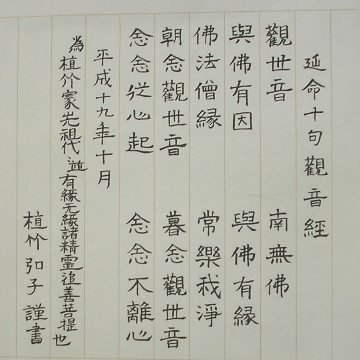 延命十句觀音經
觀世音　南無佛
與佛有因　與佛有縁
佛法僧縁　常樂我淨
朝念觀世音　暮念觀世音
念念従心起　念念不離心
平成十九年十月
為植竹家先祖代々並有縁无縁諸精霊追善菩提也
植竹弘子謹書